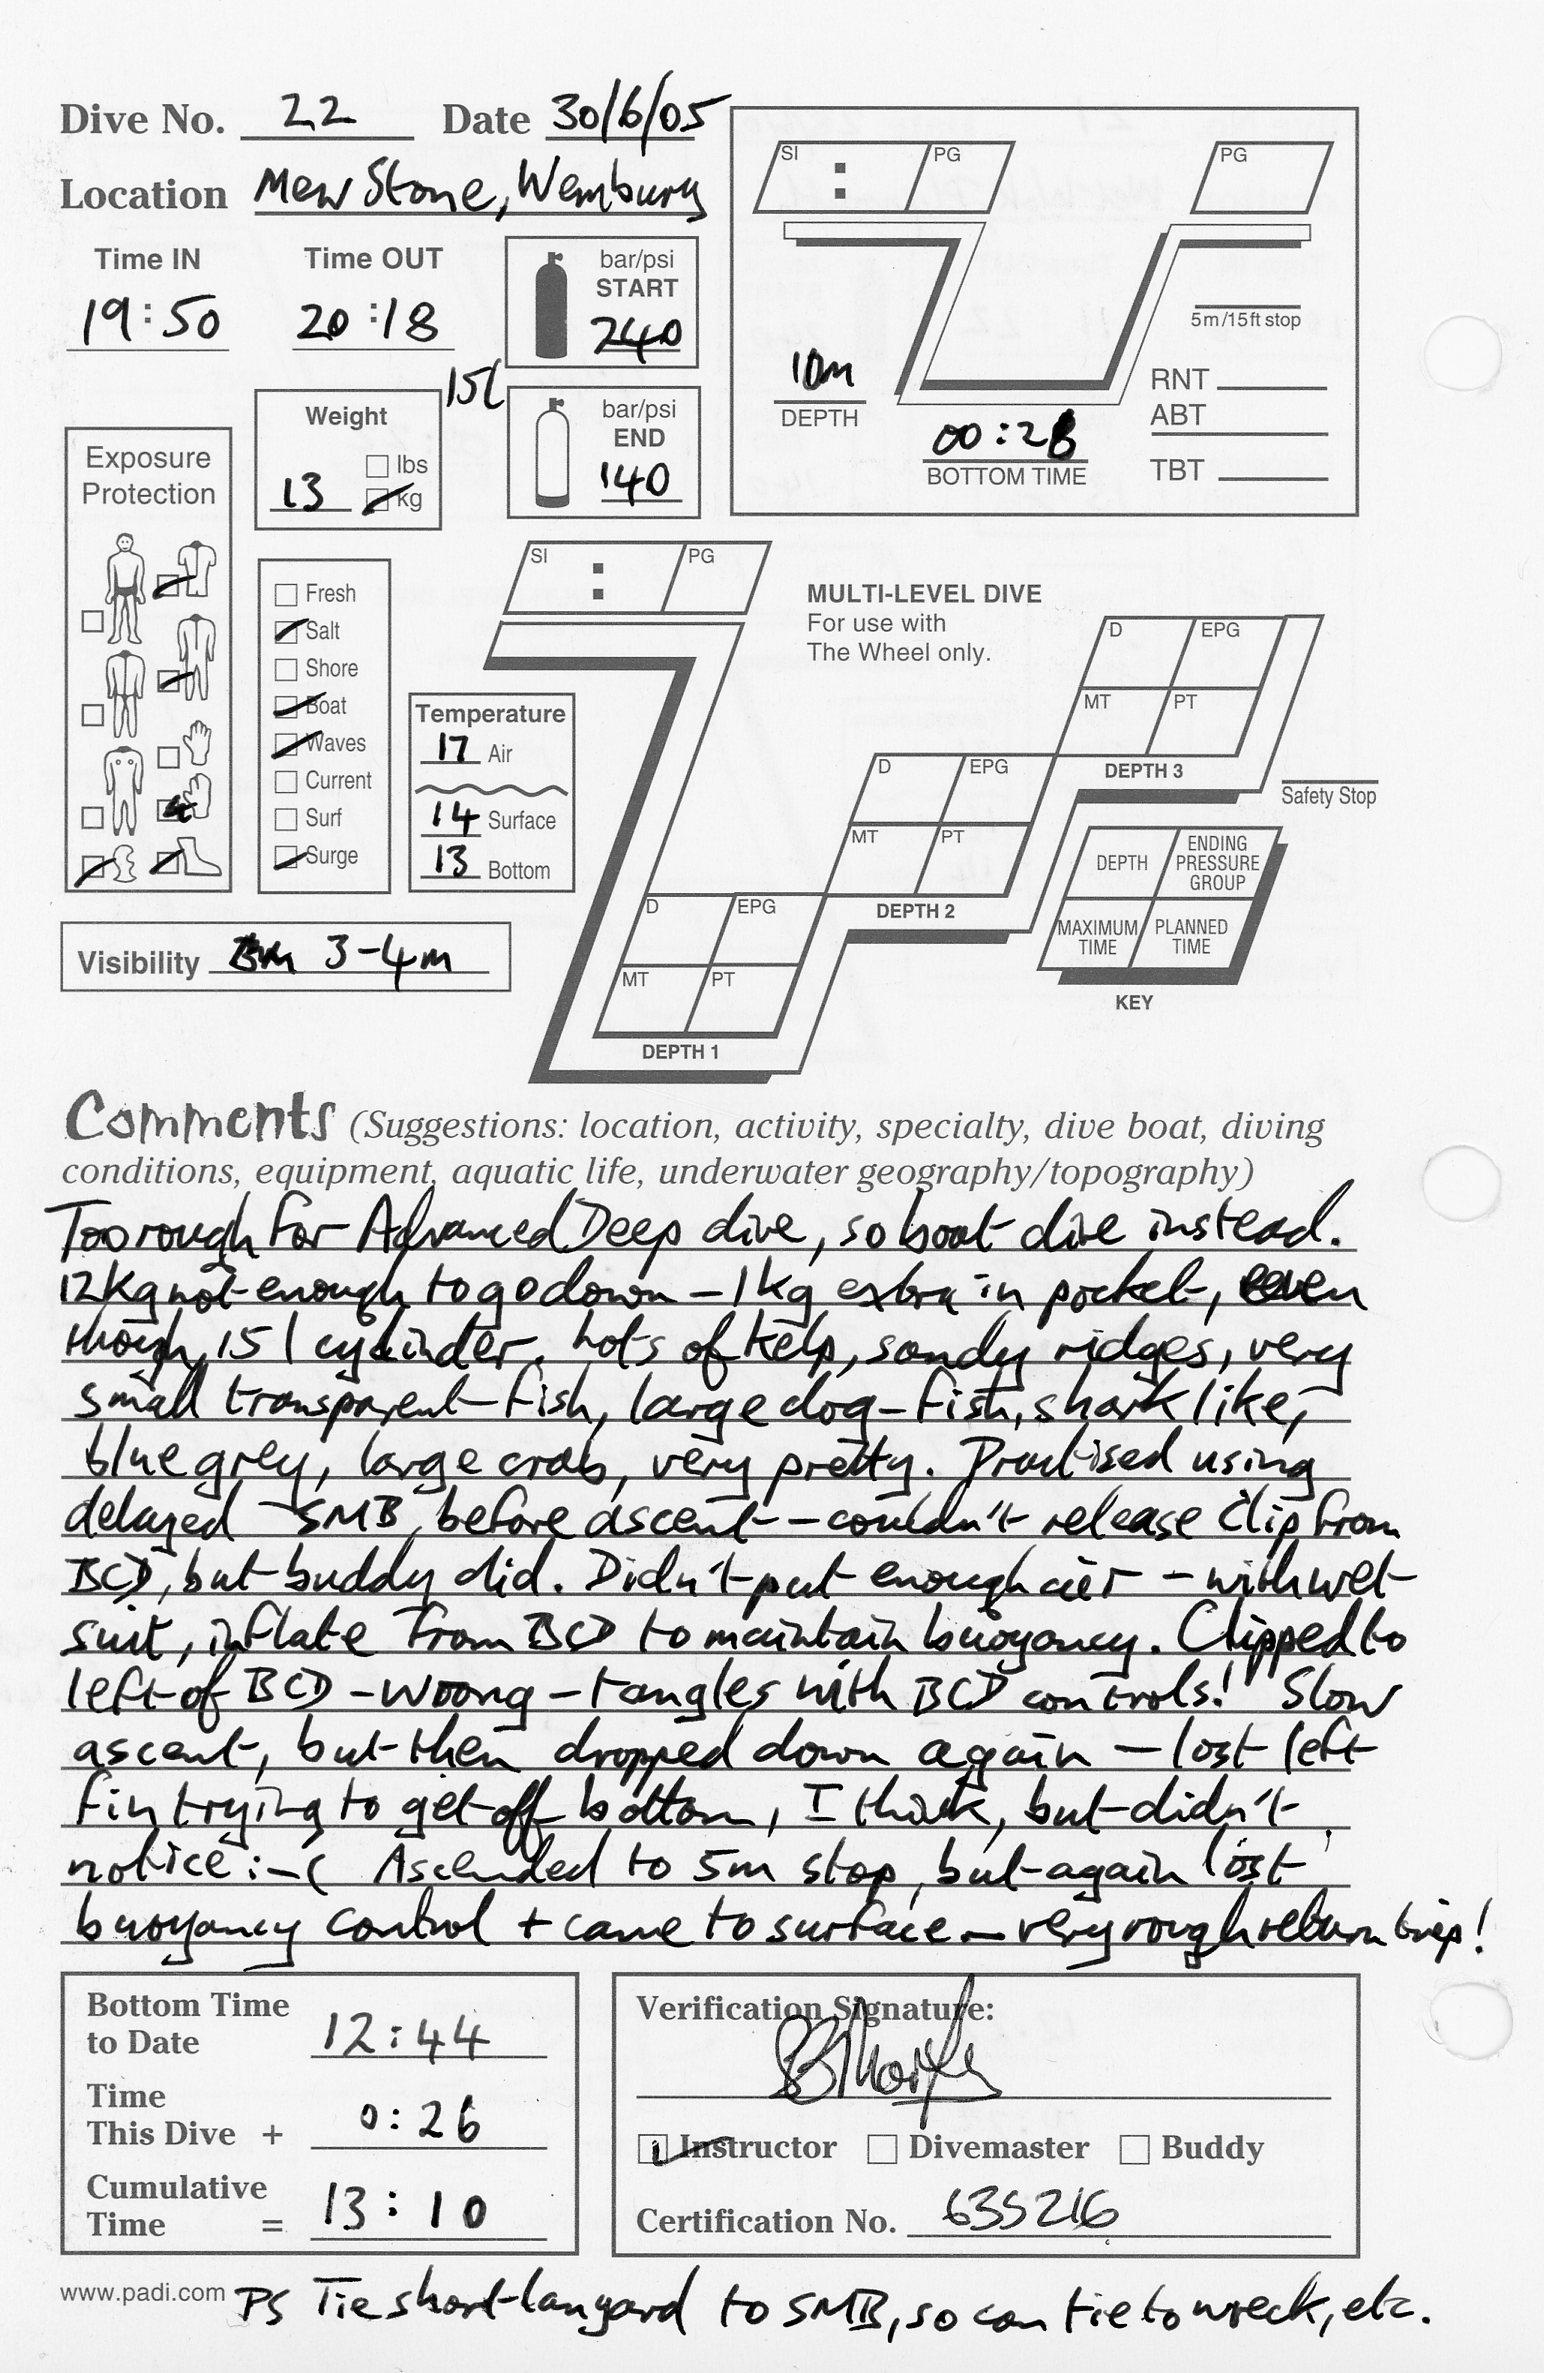 Dive No. 22 Date 30/6/05
Location Mew Stone, Wembury
Time IN Time OUT
19:50 20:18
bar/psi
START
240
15l
bar/psi
END
140
Weight
lbs
13 kg
Exposure
Protection
Fresh
Salt
Shore
Boat
Waves
Current
Surf
Surge
Temperature
17 Air
14 Surface
13 Bottom
Visibility 3-4m
SI : PG
PG
5m/15ft stop
10m
DEPTH
00:28
BOTTOM TIME
RNT
ABT
TBT
SI : PG
MULTI-LEVEL DIVE
For use with
The Wheel only.
D EPG
MT PT
DEPTH 3
Safety Stop
D EPG
MT PT
DEPTH 2
D EPG
MT PT
DEPTH 1
DEPTH
ENDING
PRESSURE
GROUP
MAXIMUM
TIME
PLANNED
TIME
KEY
Comments (Suggestions: location, activity, specialty, dive boat, diving
conditions, equipment, aquatic life, underwater geography/topography)
Too rough for Advanced Deep dive, so boat dive instead.
12kg not enough to go down - 1kg extra in pocket, even
though 15 l cylinder. Lots of kelp, sandy ridges, very
small transparent fish, large dog-fish, shark like,
blue grey, large crab, very pretty. Practised using
delayed SMB before ascent - couldn't release clip from
BCD, but buddy did. Didn't put enough air - with wet
suit, inflate from BCD to maintain buoyancy. Clipped to
left of BCD - wrong - tangles with BCD controls! Slow
ascent, but then dropped down again - lost left
fin trying to get off bottom, I think, but didn't
notice :-( Ascended to 5m stop, but again lost
buoyancy control + came to surface - very rough return trip!
Bottom Time
to Date 12:44
Time
This Dive + 0:26
Cumulative
Time = 13:10
Verification Signature:
Instructor Divemaster Buddy
Certification No. 635216
www.padi.com PS Tie short lanyard to SMB, so can tie to wreck, etc.